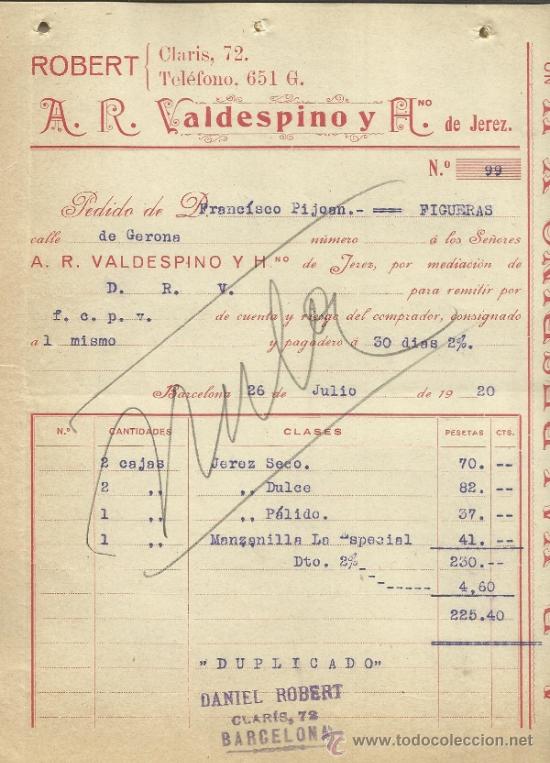 ROBERT
Claris, 72.
Teléfono. 651 G.
A. R. Valdespino y H.NO de Jerez.
N.º 99
Pedido de D Francisco Pijoan.- === FIGUERAS
calle de Gerona número á los Señores
A. R. VALDESPINO Y H.NO de Jerez, por mediación de
D. R. V. para remitir por
f.c.p.v. de cuenta y riesgo del comprador, consignado
al mismo y pagadero á 30 dias 2%.
Barcelona 26 de Julio de 1920
N.º CANTIDADES CLASES PESETAS CTS.
2 cajas Jerez Seco. 70. --
2 ,, ,, Dulce 82. --
1 ,, ,, Pálido. 37. --
1 ,, Manzanilla La Especial 41. --
Dto. 2% 230.--
----- 4,60
225.40
"DUPLICADO"
DANIEL ROBERT
CLARÍS, 72
BARCELONA
Nula
www.todocoleccion.net